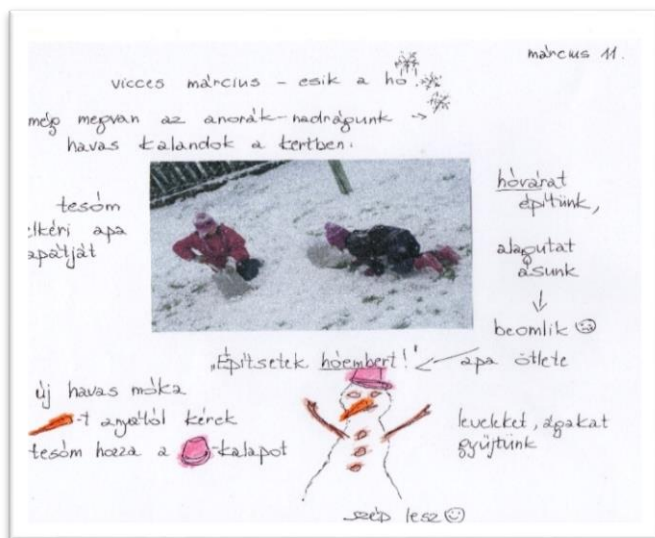 március 11.
vicces március – esik a hó!
még megvan az anorák-nadrágunk →
havas kalandok a kertben:
tesóm
elkéri apa
lapátját
hóvárat
építünk,
alagutat
ásunk
↓
beomlik ☹
„Építsetek hóembert!" ← apa ötlete
új havas móka
-t anyától kérek
tesóm hozza a -kalapot
leveleket, ágakat
gyűjtünk
szép lesz ☺